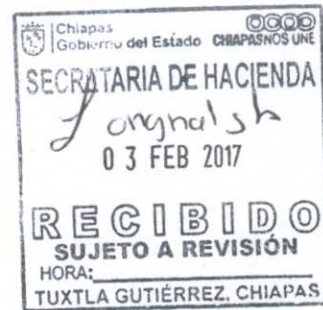 Chiapas
Gobierno del Estado CHIAPASNOS UNE
SECRATARIA DE HACIENDA
0 3 FEB 2017
RECIBIDO
SUJETO A REVISIÓN
HORA:
TUXTLA GUTIÉRREZ, CHIAPAS